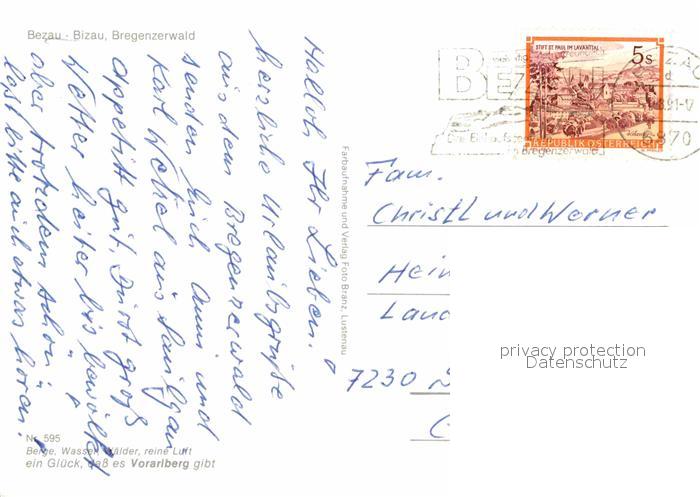 Bezau - Bizau, Bregenzerwald
Halloh Ihr Lieben!
herzliche Urlaubsgrüße
aus dem Bregenzerwald
senden Euch Anni und
Karl Wetzel aus Saulgau
Appetit gut, Durst groß
Wetter heiter bis bewölkt
aber trotzdem schön
laßt bitte auch etwas hören!
Nr. 595
Berge, Wasser, Wälder, reine Luft
ein Glück, daß es Vorarlberg gibt
Farbaufnahme und Verlag Foto Branz, Lustenau
STIFT ST. PAUL IM LAVANTTAL
5s
REPUBLIK ÖSTERREICH
BEZAU
Bregenzerwald
6870
Fam.
Christl und Werner
Hein
Land
7230
privacy protection
Datenschutz